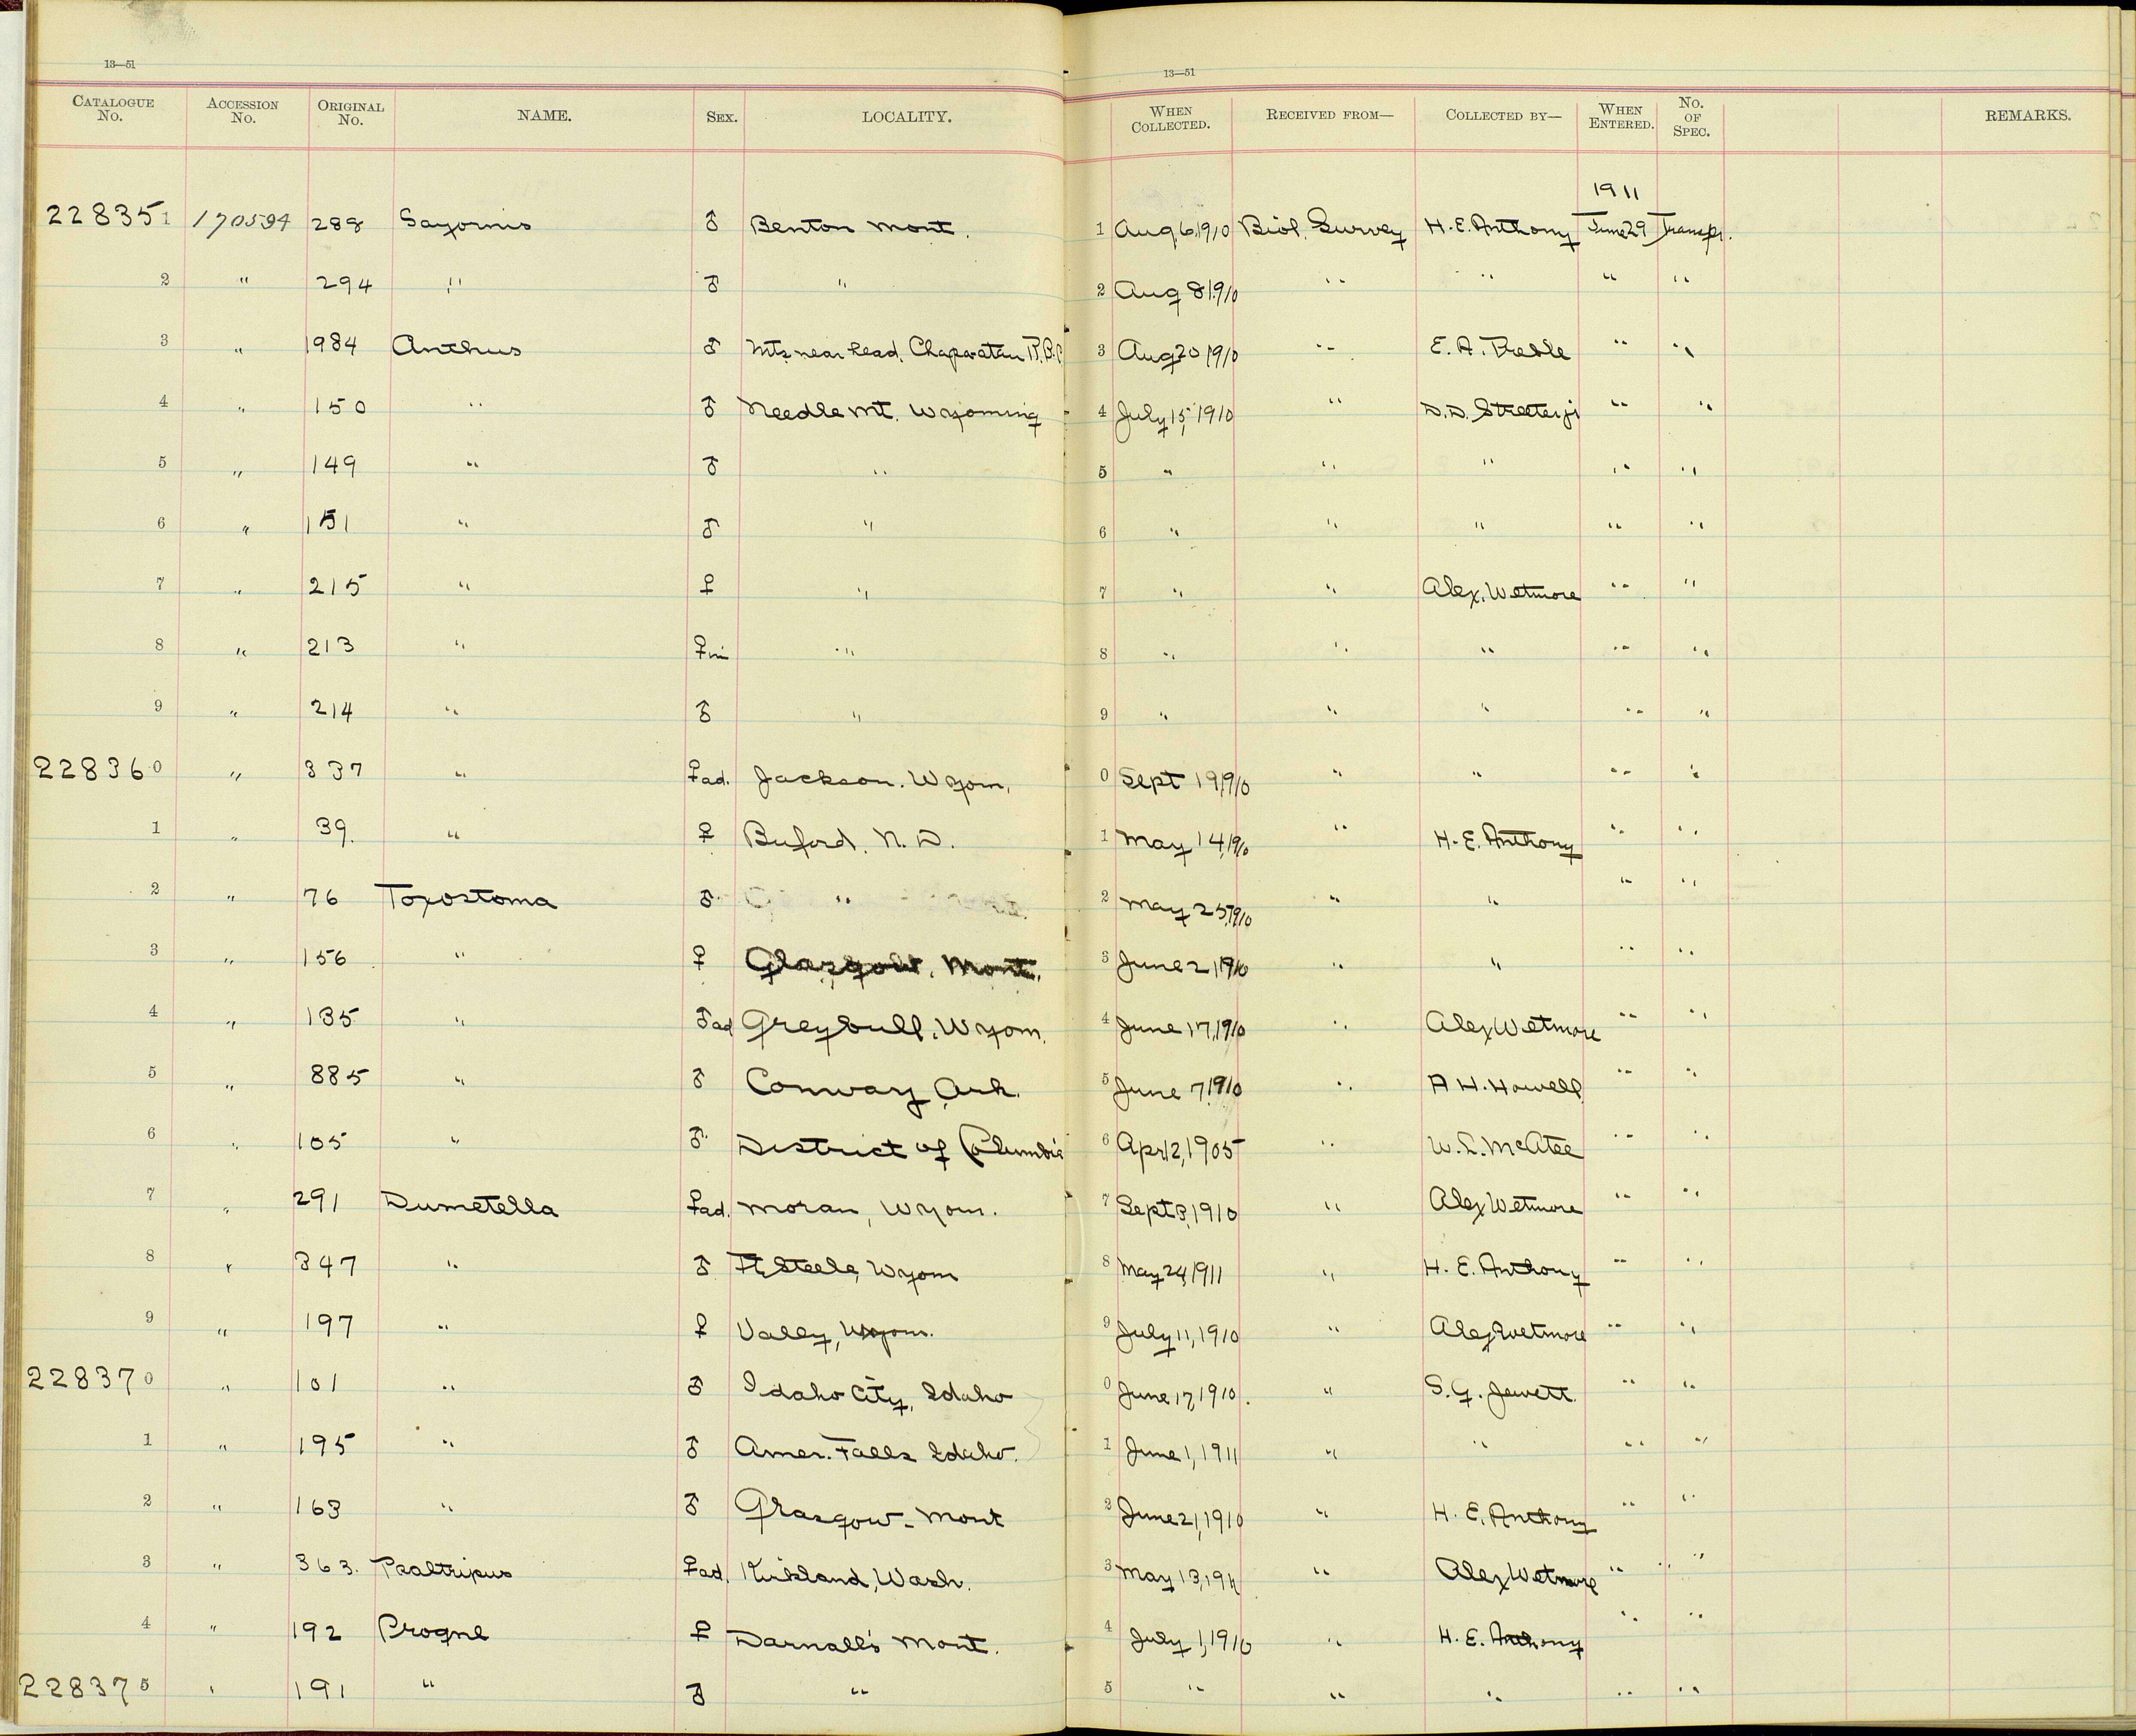 13—51 13—51
CATALOGUE No. ACCESSION No. ORIGINAL No. NAME. SEX. LOCALITY. WHEN COLLECTED. RECEIVED FROM— COLLECTED BY— WHEN ENTERED. No. OF SPEC. REMARKS.
1911
228351 170594 288 Sayornis ♂ Benton Mont. 1 Aug 6, 1910 Biol. Survey H. E. Anthony June 29 Transfr.
2 " 294 " ♂ " 2 Aug 8 1910 " " " "
3 " 1984 Anthus ♂ Mts near head, 3 Aug 20 1910 " E. A. Preble " "
4 " 150 " ♂ Needle Mt. Wyoming 4 July 15, 1910 " D. D. Streeter jr " "
5 " 149 " ♂ " 5 " " " " "
6 " 151 " ♂ " 6 " " " " "
7 " 215 " ♀ " 7 " " Alex. Wetmore " "
8 " 213 " ♀ im " 8 " " " " "
9 " 214 " ♂ " 9 " " " " "
228360 " 337 " ♀ ad. Jackson. Wyom. 0 Sept 1 1910 " " " "
1 " 39. " ♀ Buford, N. D. 1 May 14, 1910 " H. E. Anthony " "
2 " 76 Toxostoma ♂ " 2 May 25, 1910 " " " "
3 " 156 " ♀ Glasgow, Mont. 3 June 21, 1910 " " " "
4 " 135 " ♂ ad Greybull, Wyom. 4 June 17, 1910 " Alex Wetmore " "
5 " 885 " ♂ Conway, Ark. 5 June 7, 1910 " A H. Howell " "
6 " 105 " ♂ District of Columbia 6 Apr 12, 1905 " W. L. McAtee " "
7 " 291 Dumetella ♀ ad. Moran, Wyom. 7 Sept 3, 1910 " Alex Wetmore " "
8 " 347 " ♂ Ft. Steele, Wyom 8 May 24, 1911 " H. E. Anthony " "
9 " 197 " ♀ Valley, Wyom. 9 July 11, 1910 " Alex Wetmore " "
228370 " 101 " ♂ Idaho City, Idaho 0 June 17, 1910. " S. G. Jewett. " "
1 " 195 " ♂ Amer. Falls Idaho. 1 June 1, 1911 " " " "
2 " 163 " ♂ Glasgow - Mont 2 June 21, 1910 " H. E. Anthony " "
3 " 363. Psaltripus ♀ ad. Kirkland, Wash. 3 May 13, 1911 " Alex Wetmore " "
4 " 192 Progne ♀ Darnall's Mont. 4 July 1, 1910 " H. E. Anthony " "
228375 " 191 " ♂ " 5 " " " " "